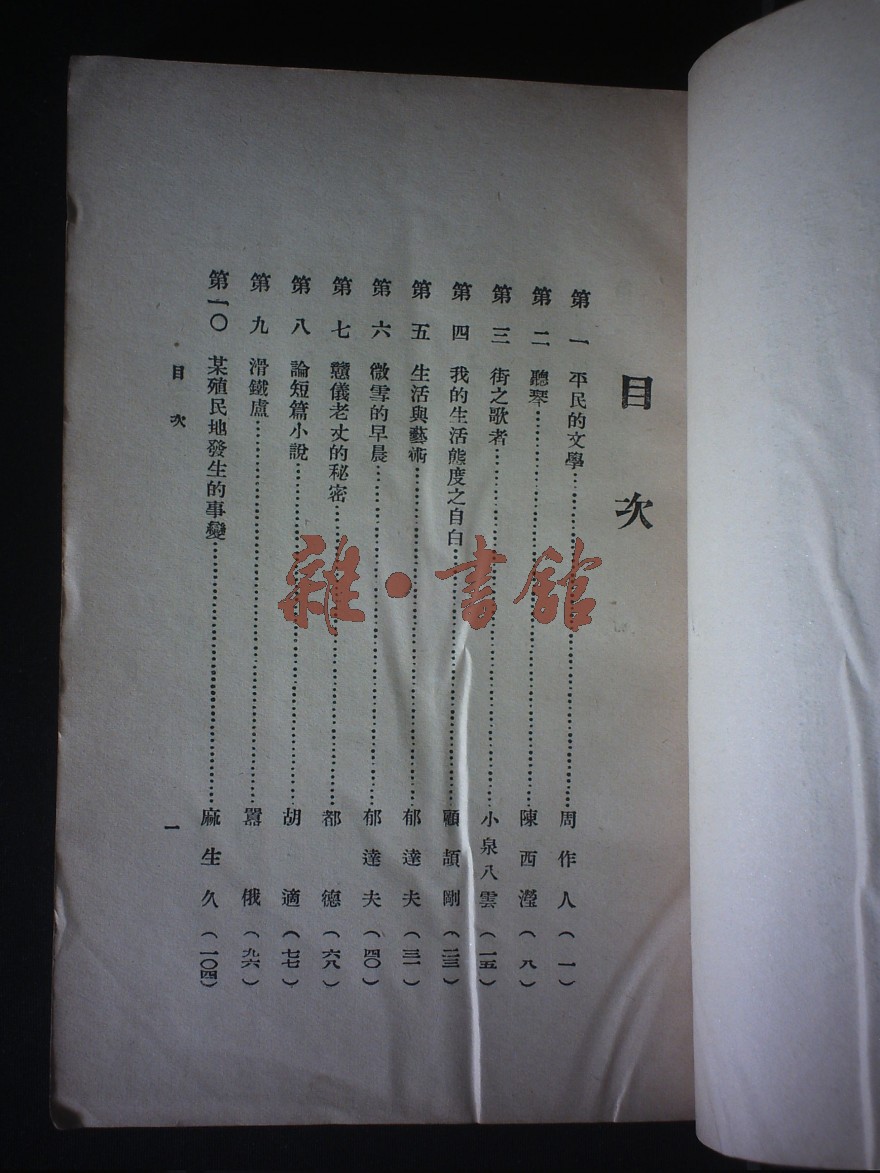 目次
第一 平民的文學……周作人(一)
第二 聽琴……陳西瀅(八)
第三 街之歌者……小泉八雲(一五)
第四 我的生活態度之自白……顧頡剛(二三)
第五 生活與藝術……郁達夫(三一)
第六 微雪的早晨……郁達夫(四〇)
第七 戇儀老丈的秘密……都德(六八)
第八 論短篇小說……胡適(七七)
第九 滑鐵盧……囂俄(九六)
第一〇 某殖民地發生的事變……麻生久(一〇四)
目次
一
雜·書館